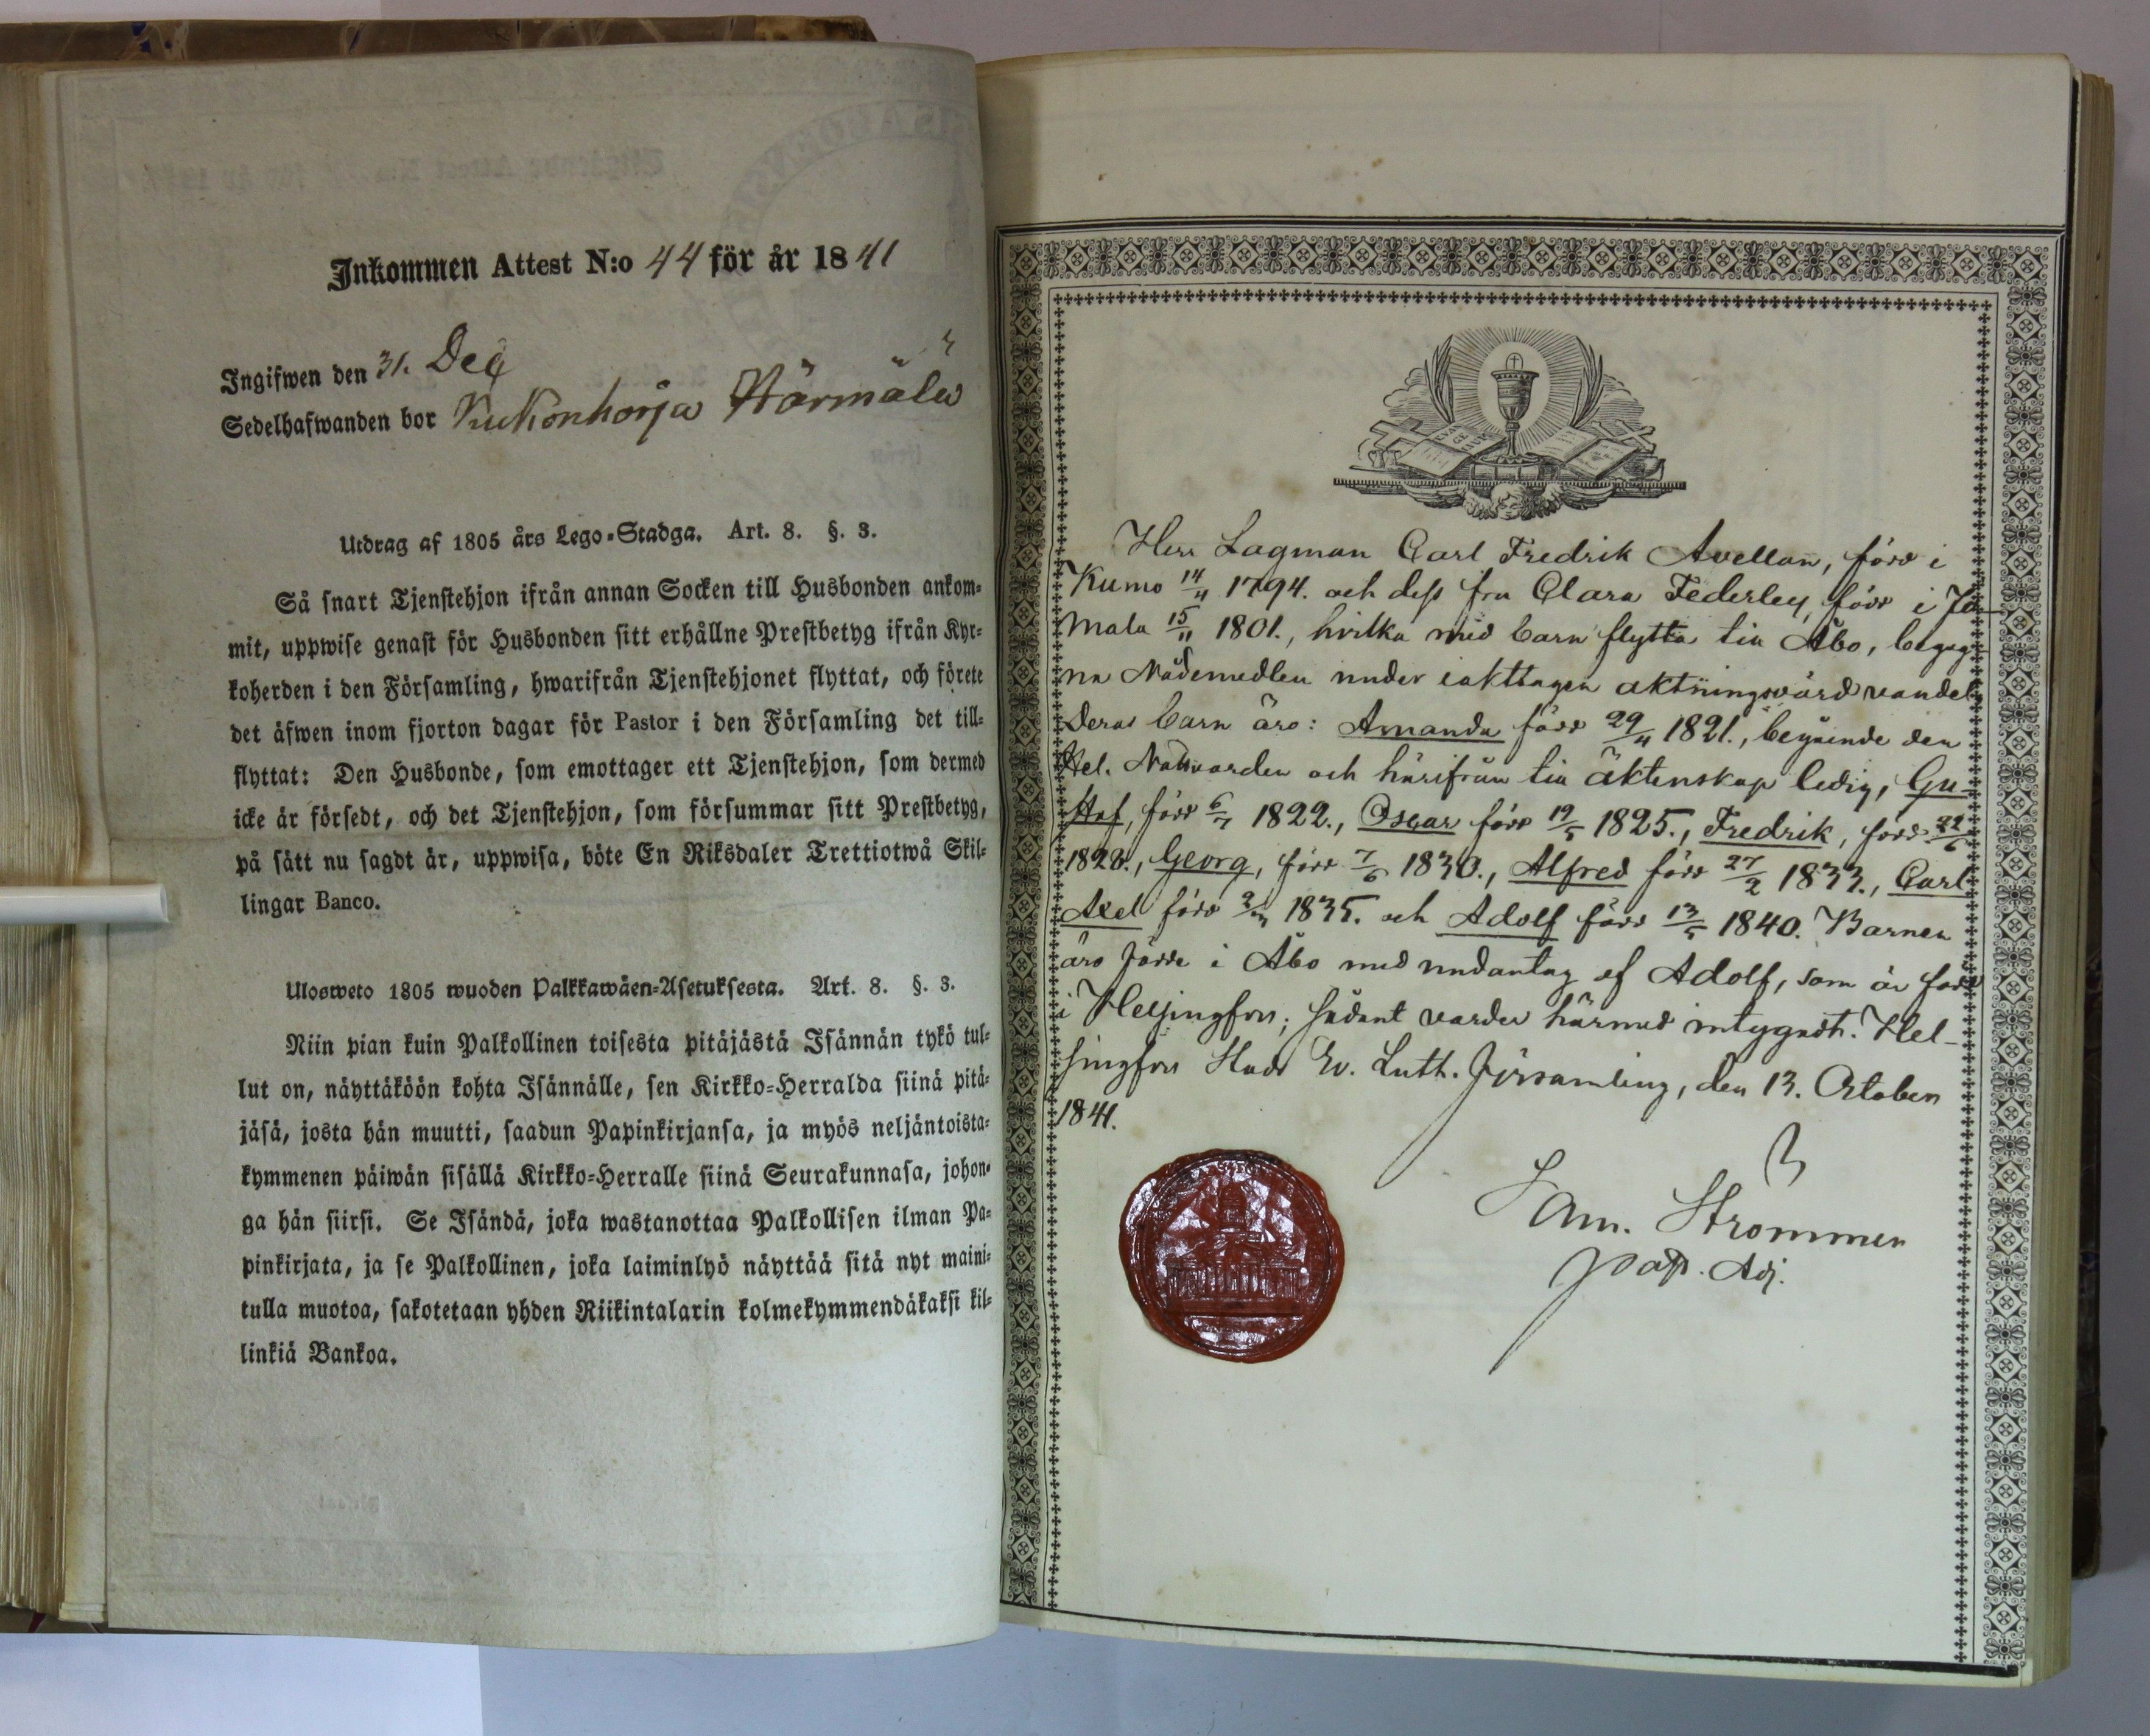 Inkommen Attest N:o 44 för år 1841
Ingifwen den 31. Dec
Sedelhafwanden bor Kukonharja Härmälä
Utdrag af 1805 års Lego-Stadga. Art. 8. §. 3.
Så snart Tjenstehjon ifrån annan Socken till Husbonden ankom-
mit, uppwise genast för Husbonden sitt erhållne Prestbetyg ifrån Kyr-
koherden i den Församling, hwarifrån Tjenstehjonet flyttat, och förete
det äfwen inom fjorton dagar för Pastor i den Församling det till-
flyttat: Den Husbonde, som emottager ett Tjenstehjon, som dermed
icke är försedt, och det Tjenstehjon, som försummar sitt Prestbetyg,
på sätt nu sagdt är, uppwisa, böte En Riksdaler Trettiotwå Skil-
lingar Banco.
Ulosweto 1805 wuoden Palkkawäen-Asetuksesta. Art. 8. §. 3.
Niin pian kuin Palkollinen toisesta pitäjästä Isännän tykö tul-
lut on, näyttäköön kohta Isännälle, sen Kirkko-Herralda siinä pitä-
jäsä, josta hän muutti, saadun Papinkirjansa, ja myös neljäntoista-
kymmenen päiwän sisällä Kirkko-Herralle siinä Seurakunnasa, johon-
ga hän siirsi. Se Isändä, joka wastanottaa Palkollisen ilman Pa-
pinkirjata, ja se Palkollinen, joka laiminlyö näyttää sitä nyt maini-
tulla muotoa, sakotetaan yhden Riikintalarin kolmekymmendäkaksi kil-
linkiä Bankoa.
EVAN
GE
LIUM
Herr Lagman Carl Fredrik Avellan, född i
Kumo 14/11 1794. och dess fru Clara Federley, född i Jo-
mala 15/11 1801., hvilka med barn flytta till Åbo, begag-
na Nådemedlen under iakttagen aktningsvärd vandel.
Deras barn äro: Amanda född 29/11 1821., begående den
Hel. Nattvarden och härifrån till äktenskap ledig, Gu-
staf, född 6/7 1822., Oscar född 19/5 1825., Fredrik, född 22/6
1828., Georg, född 7/6 1830., Alfred född 27/2 1833., Carl
Axel född 1835. och Adolf född 13/5 1840. Barnen
äro födde i Åbo med undantag af Adolf, som är född
i Helsingfors; sådant varder härmed intygadt. Hel-
singfors Stads Ev. Luth. Församling, den 13. October
1841.
Sam. Strömmer
Past. Adj.